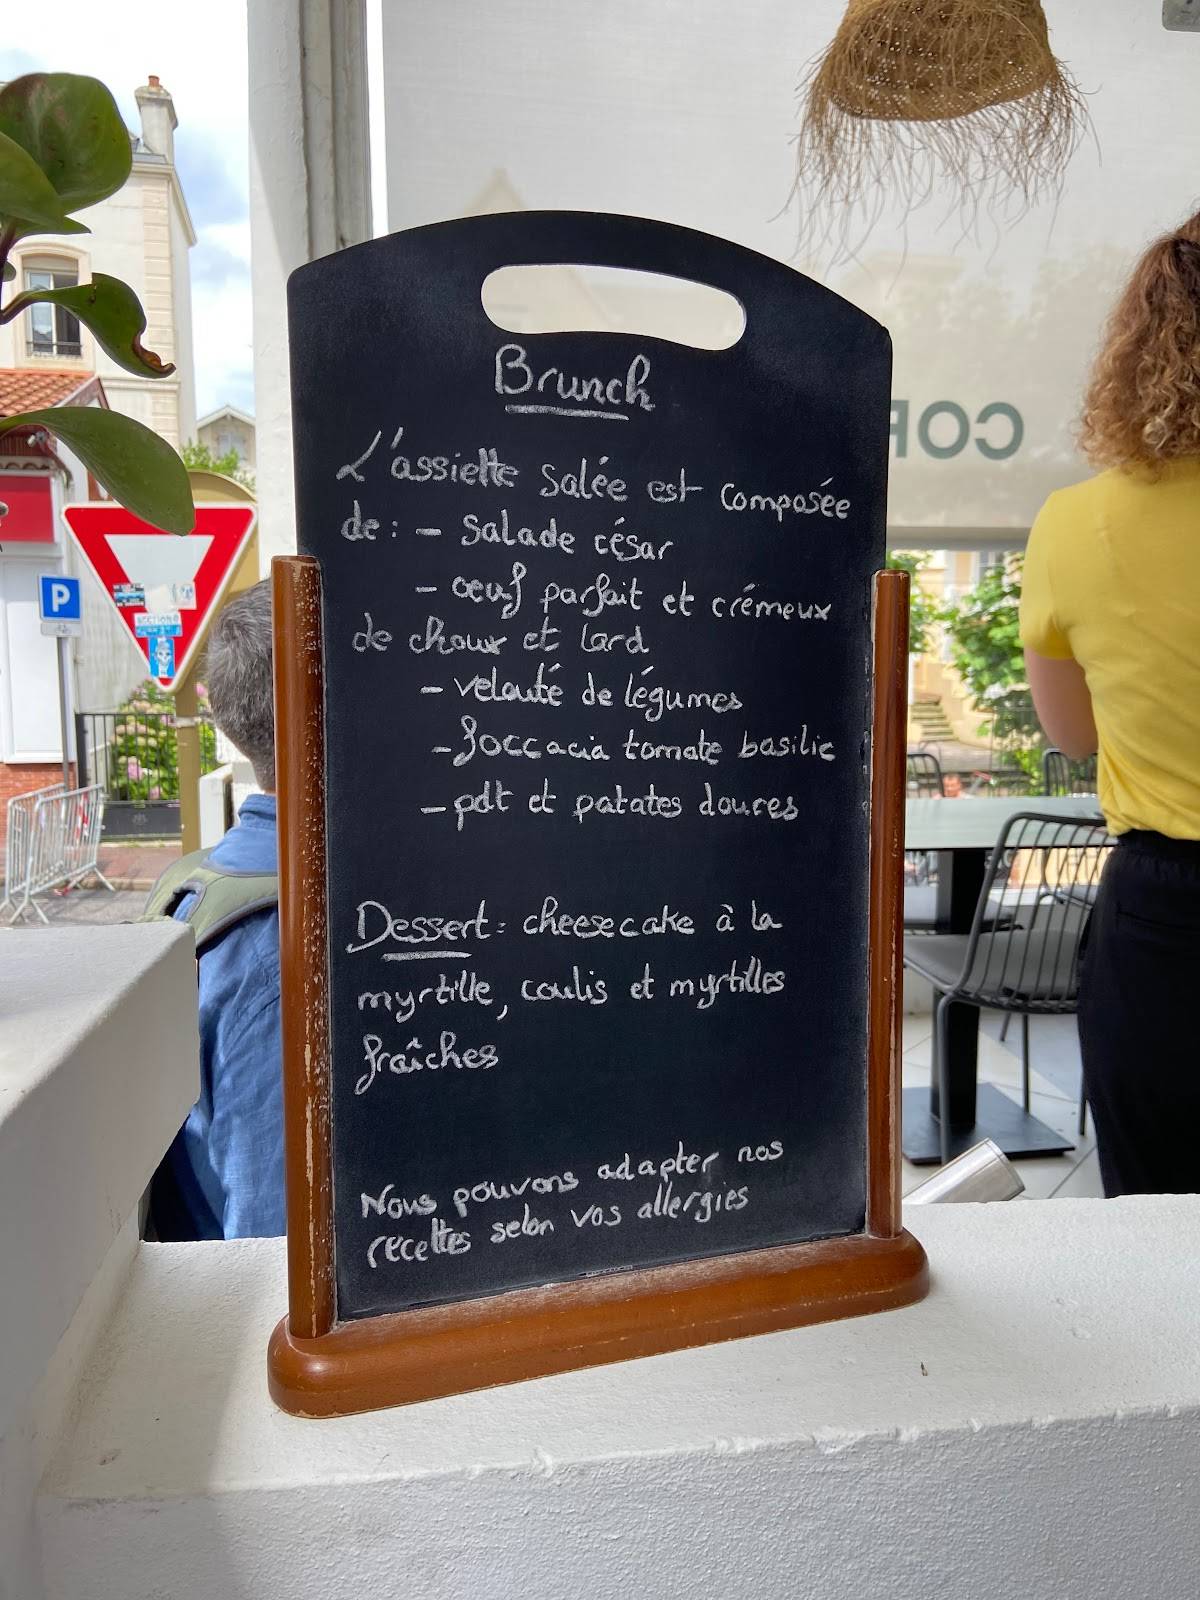 Brunch
L'assiette salée est composée
de : - Salade césar
- œuf parfait et crémeux
de choux et lard
- velouté de légumes
- foccacia tomate basilic
- pdt et patates douces
Dessert : cheesecake à la
myrtille, coulis et myrtilles
fraîches
Nous pouvons adapter nos
recettes selon vos allergies
P